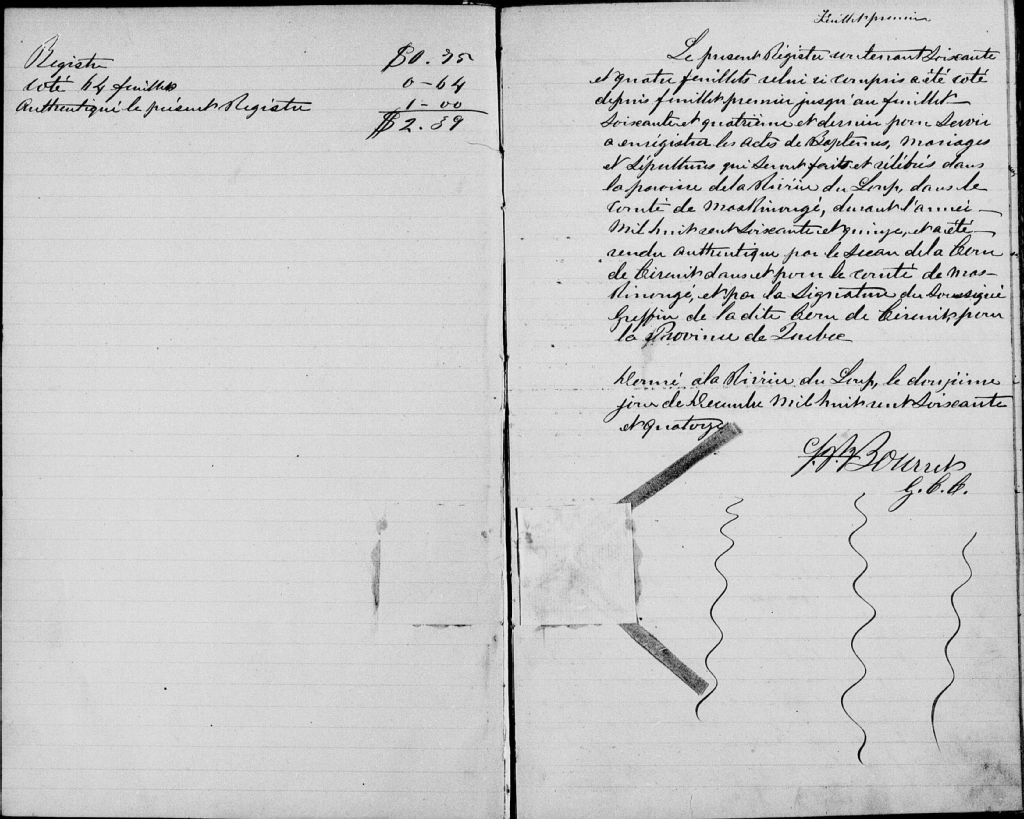 Registre $0.75
Coté 64 feuillets 0-64
Authentiqué le présent Registre 1-00
$2.39
Feuillet premier
Le présent Régistre contenant Soixante
et quatre feuillets celui ci compris a été coté
depuis feuillet premier jusqu'au feuillet
Soixante et quatrième et dernier pour Servir
a enrégistrer les actes de Baptemes, Mariages
et Sépultures qui Seront faits et célébrés dans
la paroisse de la Rivière du Loup, dans le
Comté de Maskinongé, durant l'année
Mil huit cent Soixante et quinze, et a été
rendu authentique par le Sceau de la Cour
de Circuit dans et pour le comté de Mas-
kinongé, et par la Signature du Soussigné
Greffier de la dite Cour de Circuit pour
la Province de Québec
Donné à la Rivière du Loup, le douzième
jour de Décembre Mil huit cent Soixante
et quatorze
Bourret
G.C.C.